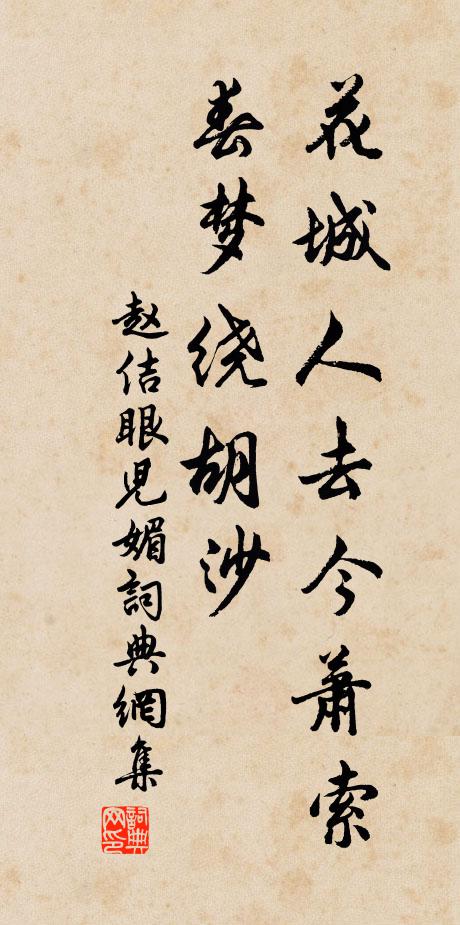 花城人去今萧索
春梦绕胡沙
赵佶眼児媚詞典網集
詞典网印